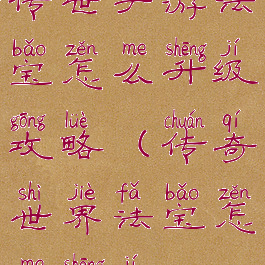 传世手游法
bǎo zěn me shēng jí
宝怎么升级
gōng lüè chuán qí
攻略（传奇
shì jiè fǎ bǎo zěn
世界法宝怎
me shēng jí